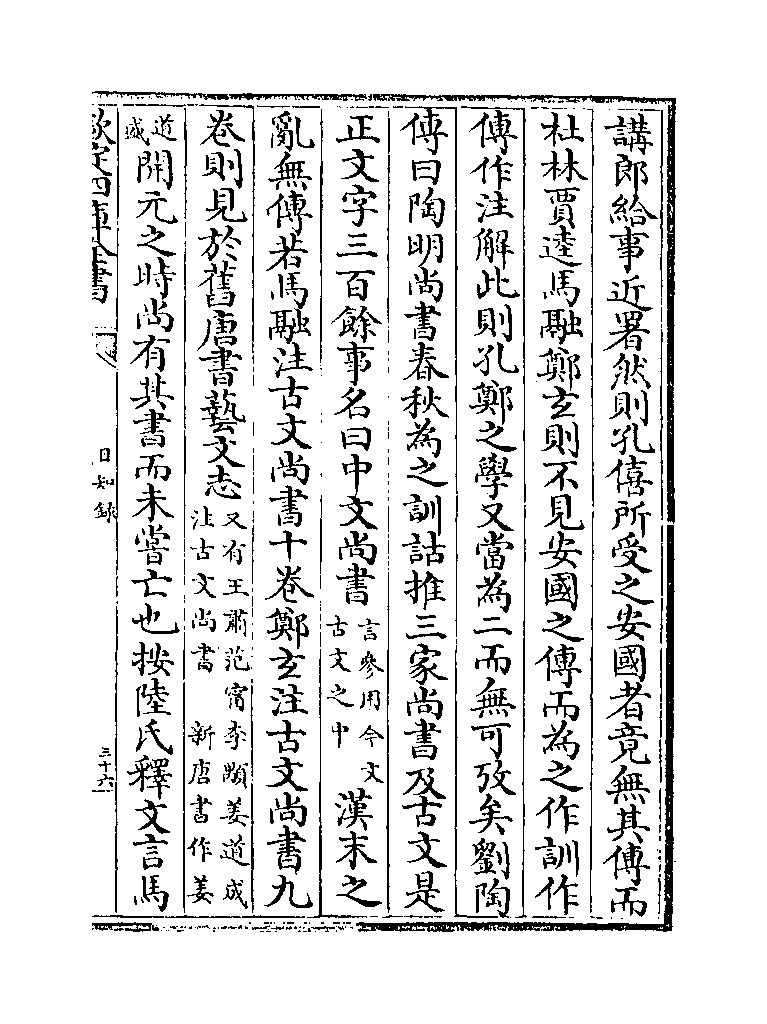 講郎給事近署然則孔僖所受之安國者竟無其傳而
杜林賈逵馬融鄭玄則不見安國之傳而為之作訓作
傳作注解此則孔鄭之學又當為二而無可攷矣劉陶
傳曰陶明尚書春秋為之訓詁推三家尚書及古文是
正文字三百餘事名曰中文尚書言參用今文古文之中漢末之
亂無傳若馬融注古文尚書十卷鄭玄注古文尚書九
卷則見於舊唐書藝文志又有王肅范甯李顒姜道成注古文尚書 新唐書作姜
道盛開元之時尚有其書而未嘗亡也按陸氏釋文言馬
欽定四庫全書
日知錄
三十六